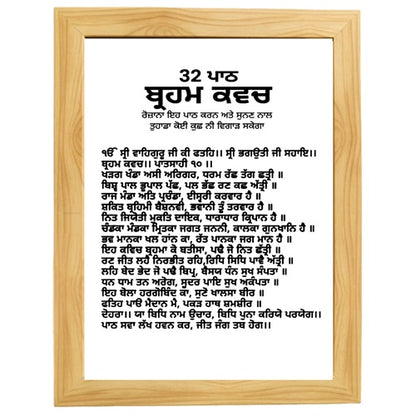 32 ਪਾਠ
ਬ੍ਰਹਮ ਕਵਚ
ਰੋਜ਼ਾਨਾ ਇਹ ਪਾਠ ਕਰਨ ਅਤੇ ਸੁਨਣ ਨਾਲ
ਤੁਹਾਡਾ ਕੋਈ ਕੁਛ ਨੀ ਵਿਗਾੜ ਸਕੇਗਾ
ੴ ਸ੍ਰੀ ਵਾਹਿਗੁਰੂ ਜੀ ਕੀ ਫਤਹਿ।। ਸ੍ਰੀ ਭਗਉਤੀ ਜੀ ਸਹਾਇ।।
ਬ੍ਰਹਮ ਕਵਚ।। ਪਾਤਸਾਹੀ ੧੦ ।।
ਖੜਗ ਖੰਡਾ ਅਸੀ ਅਰਿਗਰ, ਧਰਮ ਰੱਛ ਤੱਗ ਛਤ੍ਰੀ ॥
ਬਿਬ੍ਰ ਪਾਲ ਭੂਪਾਲ ਪੱਛ, ਪਲ ਭੱਛ ਰਣ ਕਛ ਅੱਤ੍ਰੀ ॥
ਰਾਜ ਮੰਡਾ ਅਤਿ ਪ੍ਰਚੰਡਾ, ਈਸੁਰੀ ਕਰਵਾਰ ਹੈ ॥
ਸ਼ਕਿਤ ਬ੍ਰਹਿਮੀ ਬੈਸ਼ਨਵੀ, ਭਵਾਨੀ ਤੂੰ ਤਰਵਾਰ ਹੈ ॥
ਨਿਤ ਜਿਯੋਤੀ ਮੁਕਤਿ ਦਾਇਕ, ਧਾਰਾਧਾਰ ਕ੍ਰਿਪਾਨ ਹੈ ॥
ਚੰਡਕਾ ਮੰਡਕਾ ਮ੍ਰਿਤਕਾ ਜਗਤ ਜਨਨੀ, ਕਾਲਕਾ ਗੁਨਖਾਨਿ ਹੈ ॥
ਭਵ ਮਾਨਕਾ ਖਲ ਹਾਂਨ ਕਾ, ਰੱਤ ਪਾਨਕਾ ਜਗ ਮਾਨ ਹੈ ॥
ਇਹ ਕਵਚ ਬ੍ਰਹਮ ਕਾ ਏ ਬਤੀਸਾ, ਪਢੈ ਜੋ ਨਿਤ ਛੱਤ੍ਰੀ ॥
ਰਣ ਜੀਤ ਲਹੈ ਨਿਰਭੀਤ ਰਹਿ,ਰਿਧਿ ਸਿਧਿ ਪਾਵੈ ਅੱਤ੍ਰੀ ॥
ਲਹਿ ਬੇਦ ਭੇਦ ਜੋ ਪਢੈ ਬਿਪ੍ਰ, ਬੈਸਯ ਧੰਨ ਸੁਖ ਸੰਪਤਾ ॥
ਧਨ ਧਾਮ ਤਨ ਅਰੋਗ, ਸੂਦਰ ਪਾਇ ਸੁਖ ਅਕੰਪਤਾ ॥
ਇਹ ਬੇਲਾ ਹਰਗੋਬਿੰਦ ਕਾ, ਸੁਣੋ ਖਾਲਸਾ ਬੀਰ ॥
ਫਤਿਹ ਪਾਓ ਮੈਦਾਨ ਮੈਂ, ਪਕੜ ਹਾਥ ਸ਼ਮਸ਼ੀਰ ॥
ਦੋਹਰਾ।। ਯਾ ਬਿਧਿ ਨਾਮ ਉਚਾਰ, ਬਿਧਿ ਪੂਨਾ ਕਰਿਯੋ ਪਰਯੋਗ।।
ਪਾਠ ਸਵਾ ਲੱਖ ਹਵਨ ਕਰ, ਜੀਤ ਜੰਗ ਤਬ ਹੋਗ।।